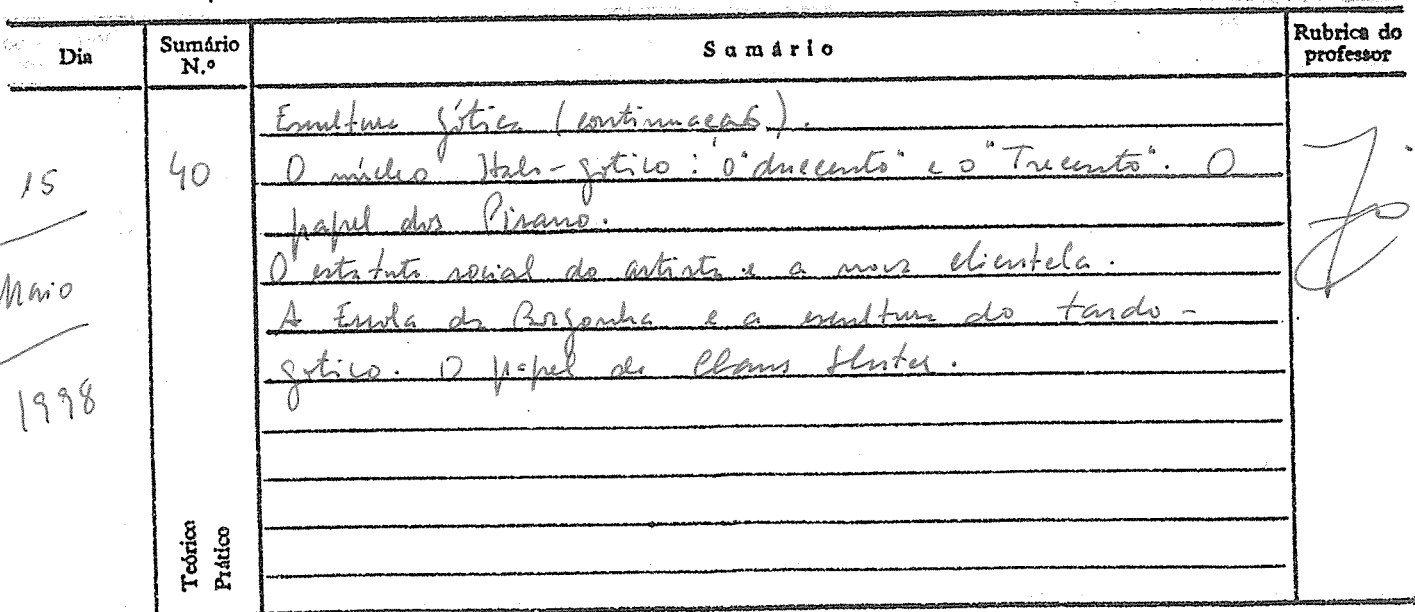 Dia
Sumário N.º
Sumário
Rubrica do professor
15
Maio
1998
40
Escultura gótica (continuação).
O núcleo Italo-gótico: o "duecento" e o "Trecento". O
papel dos Pisano.
O estatuto social do artista e a nova clientela.
A Escola da Borgonha e a escultura do tardo-
gotico. O papel de Claus Sluter.
Teórico
Prático